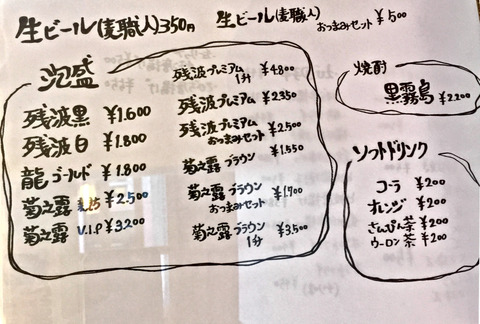 生ビール(麦職人)350円
生ビール(麦職人)
おつまみセット ¥500
泡盛
残波黒 ¥1.600
残波白 ¥1.800
龍ゴールド ¥1.800
菊之露 ¥2,500
菊之露 V.I.P ¥3,200
残波プレミアム ¥4.800
1分
残波プレミアム ¥2350
残波プレミアム ¥2.500
おつまみセット
菊之露 ブラウン ¥1.550
菊之露 ブラウン ¥1.700
おつまみセット
菊之露 ブラウン ¥3,500
1分
焼酎
黒霧島 ¥2.200
ソフトドリンク
コーラ ¥200
オレンジ ¥200
さんぴん茶 ¥200
ウーロン茶 ¥200